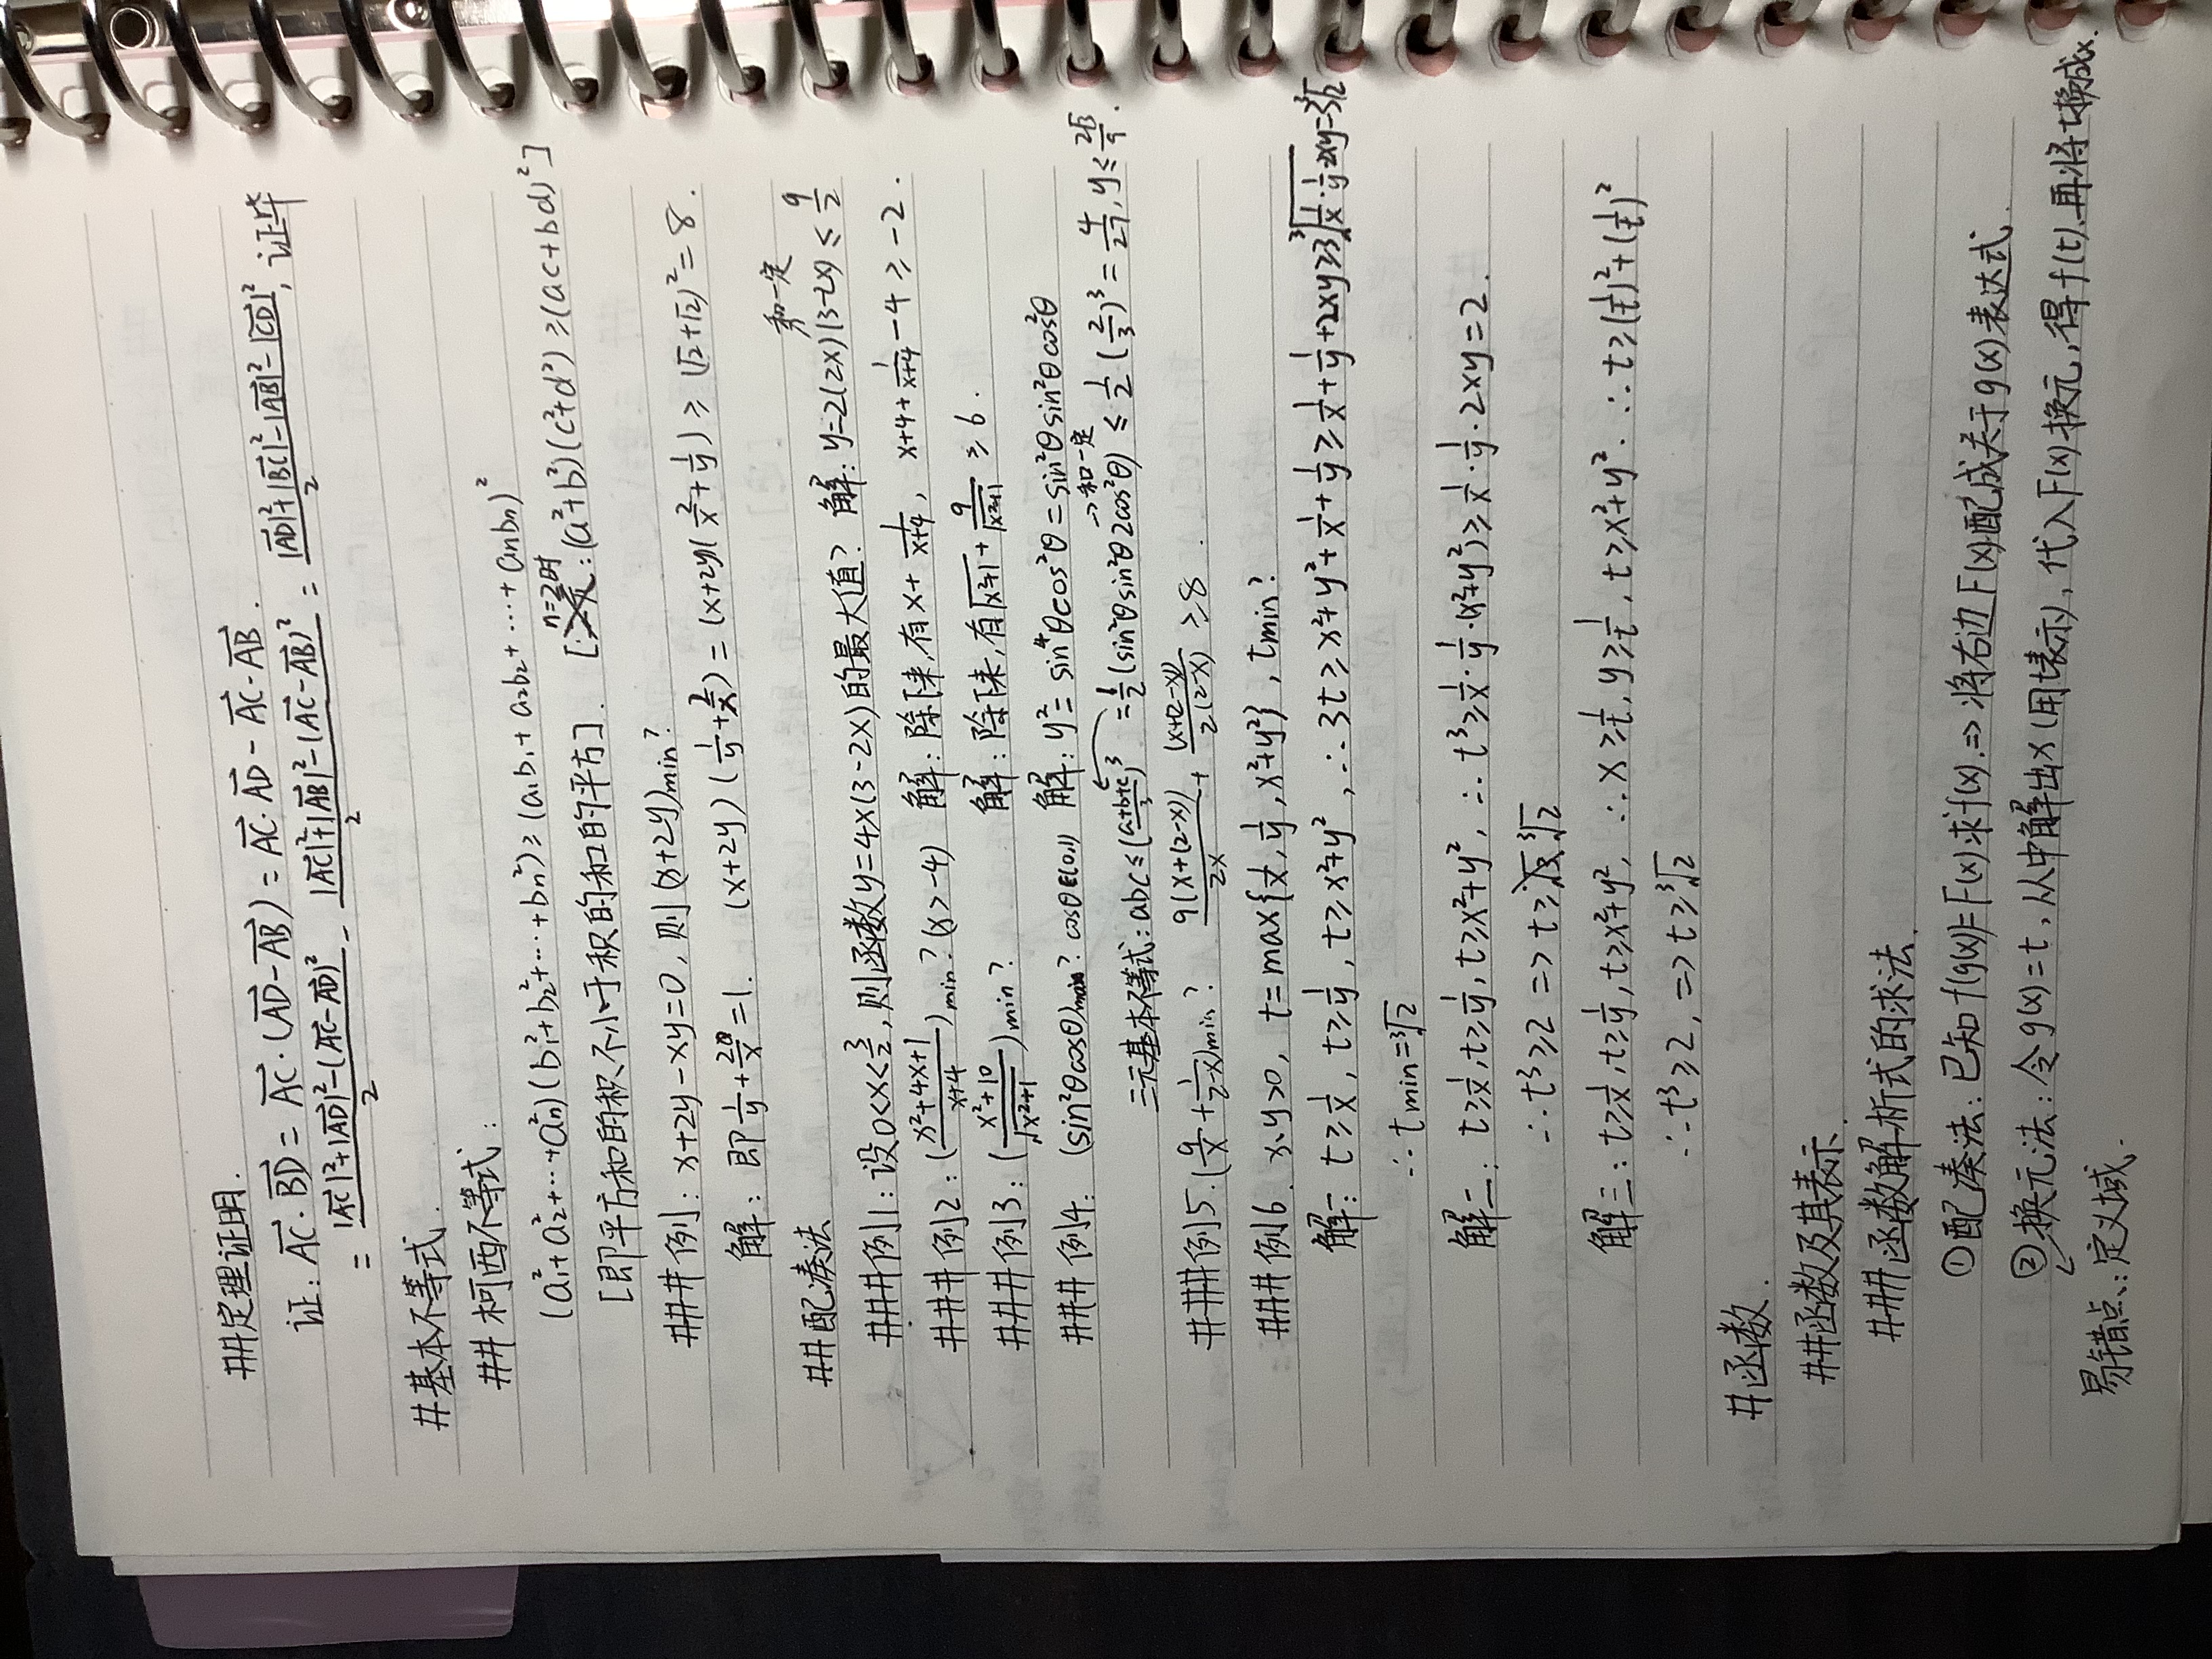 ##定理证明.
证: AC·BD = AC·(AD-AB) = AC·AD - AC·AB.
= (|AC|²+|AD|²-(AC-AD)²)/2 - (|AC|²+|AB|²-(AC-AB)²)/2 = (|AD|²+|BC|²-|AB|²-|CD|²)/2, 证毕
#基本不等式.
##柯西不等式:
(a₁²+a₂²+…+aₙ²)(b₁²+b₂²+…+bₙ²)≥(a₁b₁+a₂b₂+…+aₙbₙ)²
[即平方和的积不小于积的和的平方]. [n=2时:(a²+b²)(c²+d²)≥(ac+bd)²]
###例: x+2y-xy=0, 则(x+2y)min?
解: 即1/y+2/x=1. (x+2y)(1/y+2/x)=(x+2y)(2/x+1/y)≥(√2+√2)²=8.
##配凑法 和一定
###例1:设0<x<3/2,则函数y=4x(3-2x)的最大值? 解:y=2(2x)(3-2x)≤9/2
###例2:((x²+4x+1)/(x+4))min?(x>-4) 解:除下来,有x+1/(x+4), x+4+1/(x+4)-4≥-2.
###例3:((x²+10)/√(x²+1))min? 解:除下来,有√(x²+1)+9/√(x²+1)≥6.
###例4:(sin²θcosθ)max? cosθ∈(0,1) 解:y²=sin⁴θcos²θ=sin²θsin²θcos²θ
三元基本不等式:abc≤((a+b+c)/3)³ =1/2(sin²θsin²θ2cos²θ)→和一定≤1/2(2/3)³=4/27,y≤2√3/9.
###例5.(9/x+1/(2-x))min? 9(x+(2-x))/2x+(x+(2-x))/2(2-x)≥8.
###例6.x、y>0, t=max{1/x,1/y,x²+y²}, tmin?
解一:t≥1/x,t≥1/y,t≥x²+y²,∴3t≥x²+y²+1/x+1/y≥1/x+1/y+2xy≥3∛(1/x·1/y·2xy)=3∛2
∴tmin=∛2
解二:t≥1/x,t≥1/y,t≥x²+y²,∴t³≥1/x·1/y·(x²+y²)≥1/x·1/y·2xy=2.
∴t³≥2⇒t≥∛2
解三:t≥1/x,t≥1/y,t≥x²+y²,∴x≥1/t,y≥1/t,t≥x²+y²∴t≥(1/t)²+(1/t)²
∴t³≥2,⇒t≥∛2
#函数.
##函数及其表示.
###函数解析式的求法.
①配凑法:已知f(g(x))=F(x)求f(x).⇒将右边F(x)配成关于g(x)表达式.
②换元法:令g(x)=t,从中解出x(用t表示),代入F(x)换元,得f(t),再将t换成x.
易错点:定义域.